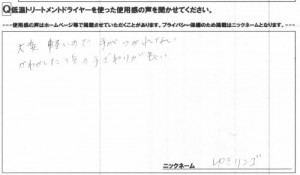 Q低温トリートメントドライヤーを使った使用感の声を聞かせてください。
---使用感の声はホームページ等で掲載させていただくことがあります。プライバシー保護のため掲載はニックネームとなります。---
大変 軽いので 手がつかれない
かわかした後の手ざわりが良い
ニックネーム ゆきリンゴ